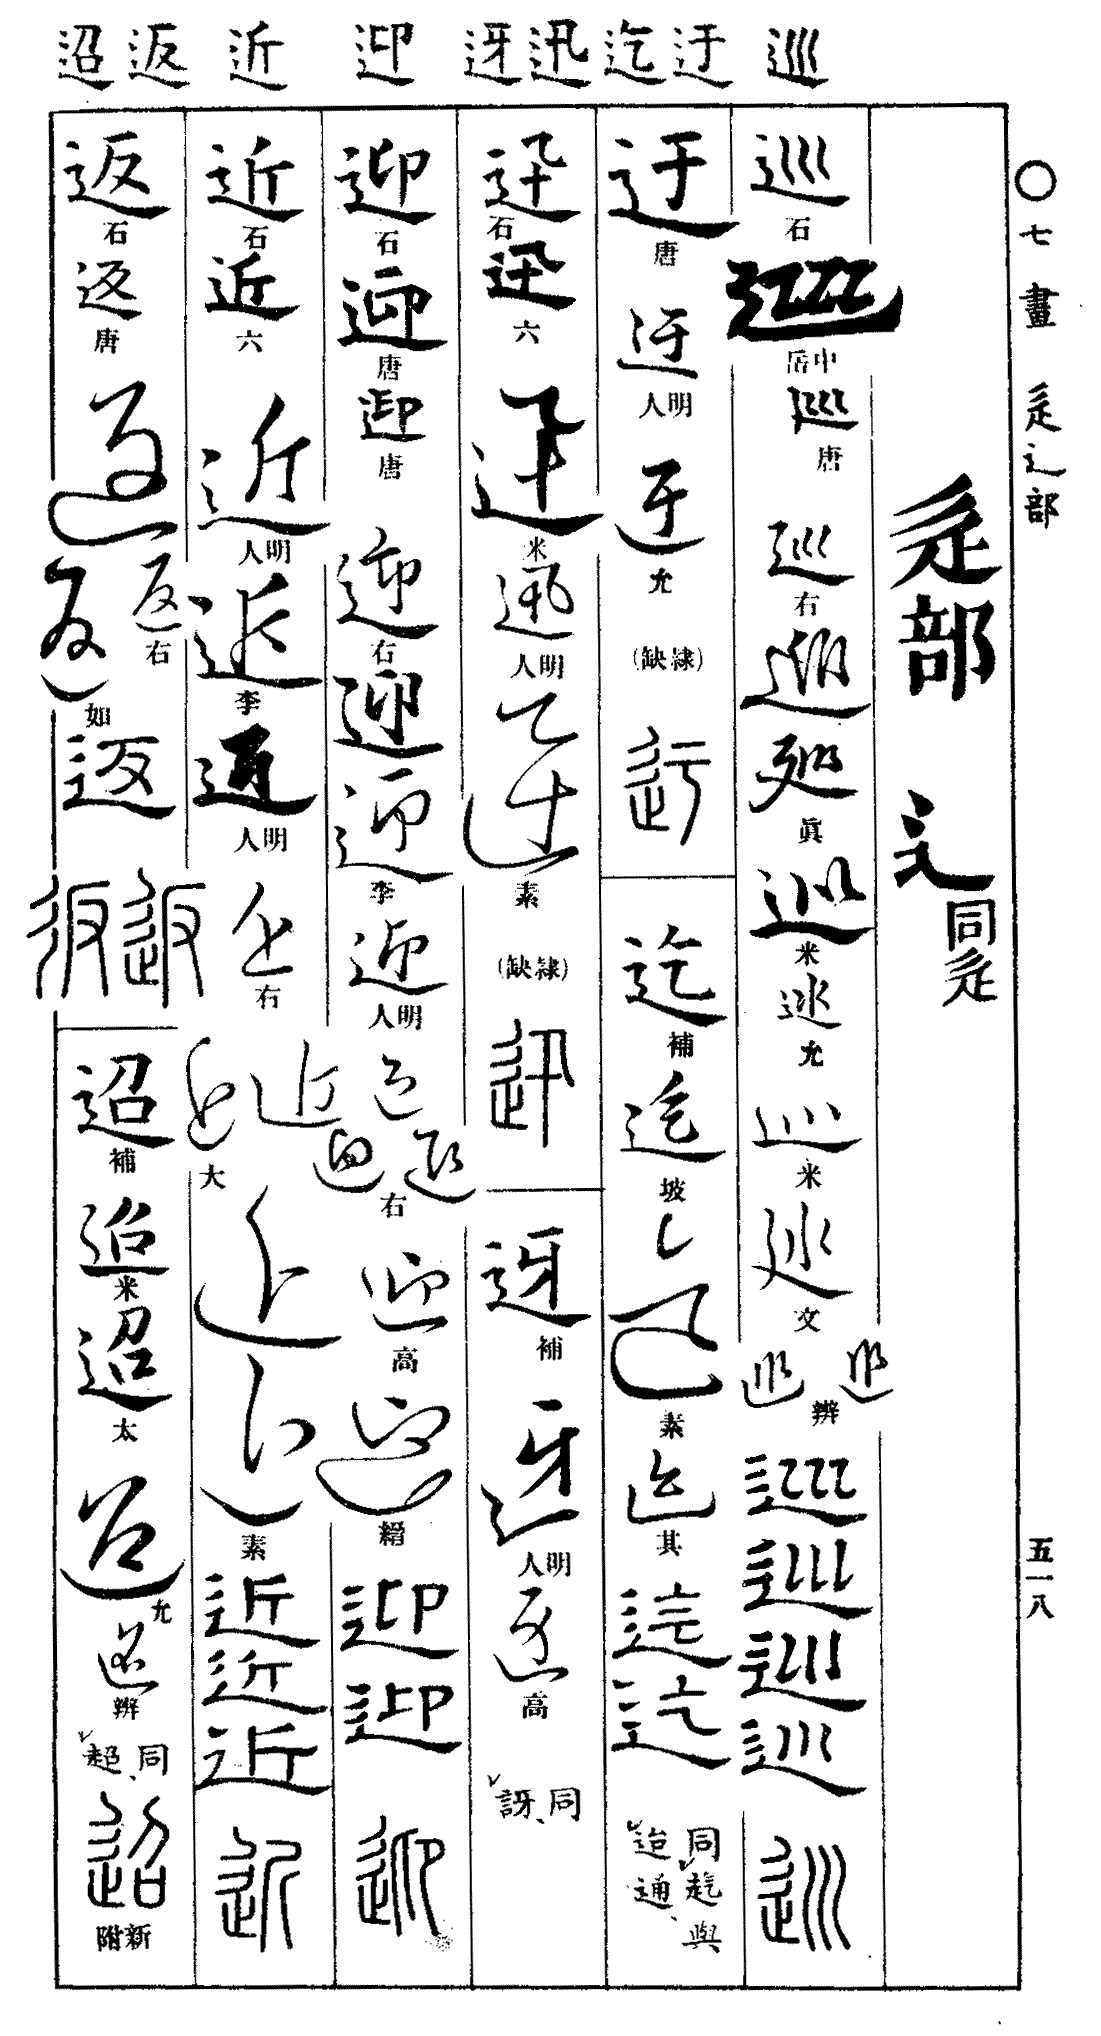 巡 迂 迄 迅 迓 迎 近 返 迢
〇七畫 辵辶部
五一八
辵部 辶同辵
巡石
巡中岳
巡唐
巡右
巡
巡眞
巡米
巡允
巡米
巡文
巡巡辨
巡
巡
巡
巡
巡
迂唐
迂明人
迂允
(隷缺)
迂
迄補
迄坡
迄素
迄其
迄
迄
同趌與迨通
迅石
迅六
迅米
迅明人
迅素
(隷缺)
迅
迓補
迓明人
迓高
同訝
迎石
迎唐
迎唐
迎右
迎
迎李
迎明人
迎迎迎右
迎高
迎縉
迎
迎
迎
近石
近六
近明人
近李
近明人
近右
近近大
近素
近素
近
近
近
近
返石
返唐
返
返右
返如
返
返返
迢補
迢米
迢太
迢允
迢辨
同超
迢新附